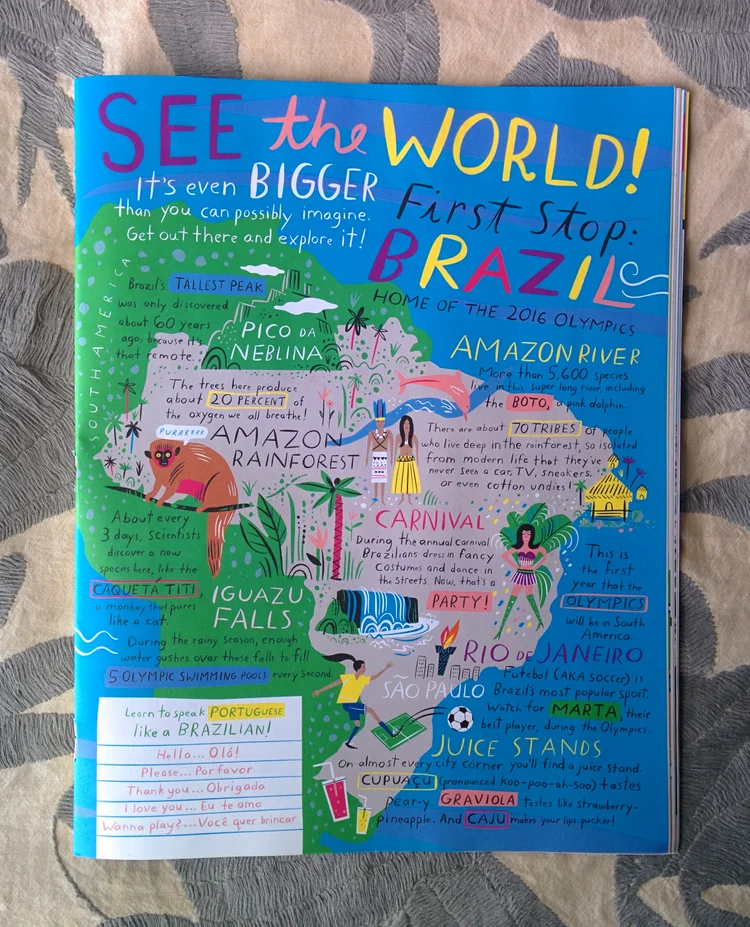 SEE the WORLD!
It's even BIGGER
than you can possibly imagine.
Get out there and explore it!
First Stop:
BRAZIL
HOME OF THE 2016 OLYMPICS
SOUTH AMERICA
Brazil's TALLEST PEAK
was only discovered
about 60 years
ago, because it's
that remote.
PICO DA
NEBLINA
AMAZON RIVER
More than 5,600 species
live in this super long river, including
the BOTO, a pink dolphin.
The trees here produce
about 20 PERCENT of
the oxygen we all breathe!
AMAZON
RAINFOREST
PURRRRRR
There are about 70 TRIBES of people
who live deep in the rainforest, so isolated
from modern life that they've
never seen a car, TV, sneakers,
or even cotton undies!
About every
3 days, scientists
discover a new
species here, like the
CAQUETÁ TITI,
a monkey that purrs
like a cat.
CARNIVAL
During the annual carnival
Brazilians dress in fancy
costumes and dance in
the streets. Now, that's a
PARTY!
This is
the first
year that the
OLYMPICS
will be in South
America.
IGUAZU
FALLS
During the rainy season, enough
water gushes over these falls to fill
5 OLYMPIC SWIMMING POOLS every second.
RIO de JANEIRO
SÃO PAULO
Futebol (AKA soccer) is
Brazil's most popular sport.
Watch for MARTA, their
best player, during the Olympics.
JUICE STANDS
On almost every city corner you'll find a juice stand.
CUPUAÇU (pronounced koo-poo-ah-soo) tastes
pear-y. GRAVIOLA tastes like strawberry-
pineapple. And CAJU makes your lips pucker!
Learn to speak PORTUGUESE
like a BRAZILIAN!
Hello... Olá!
Please... Por favor
Thank you... Obrigada
I love you... Eu te amo
Wanna play?... Você quer brincar